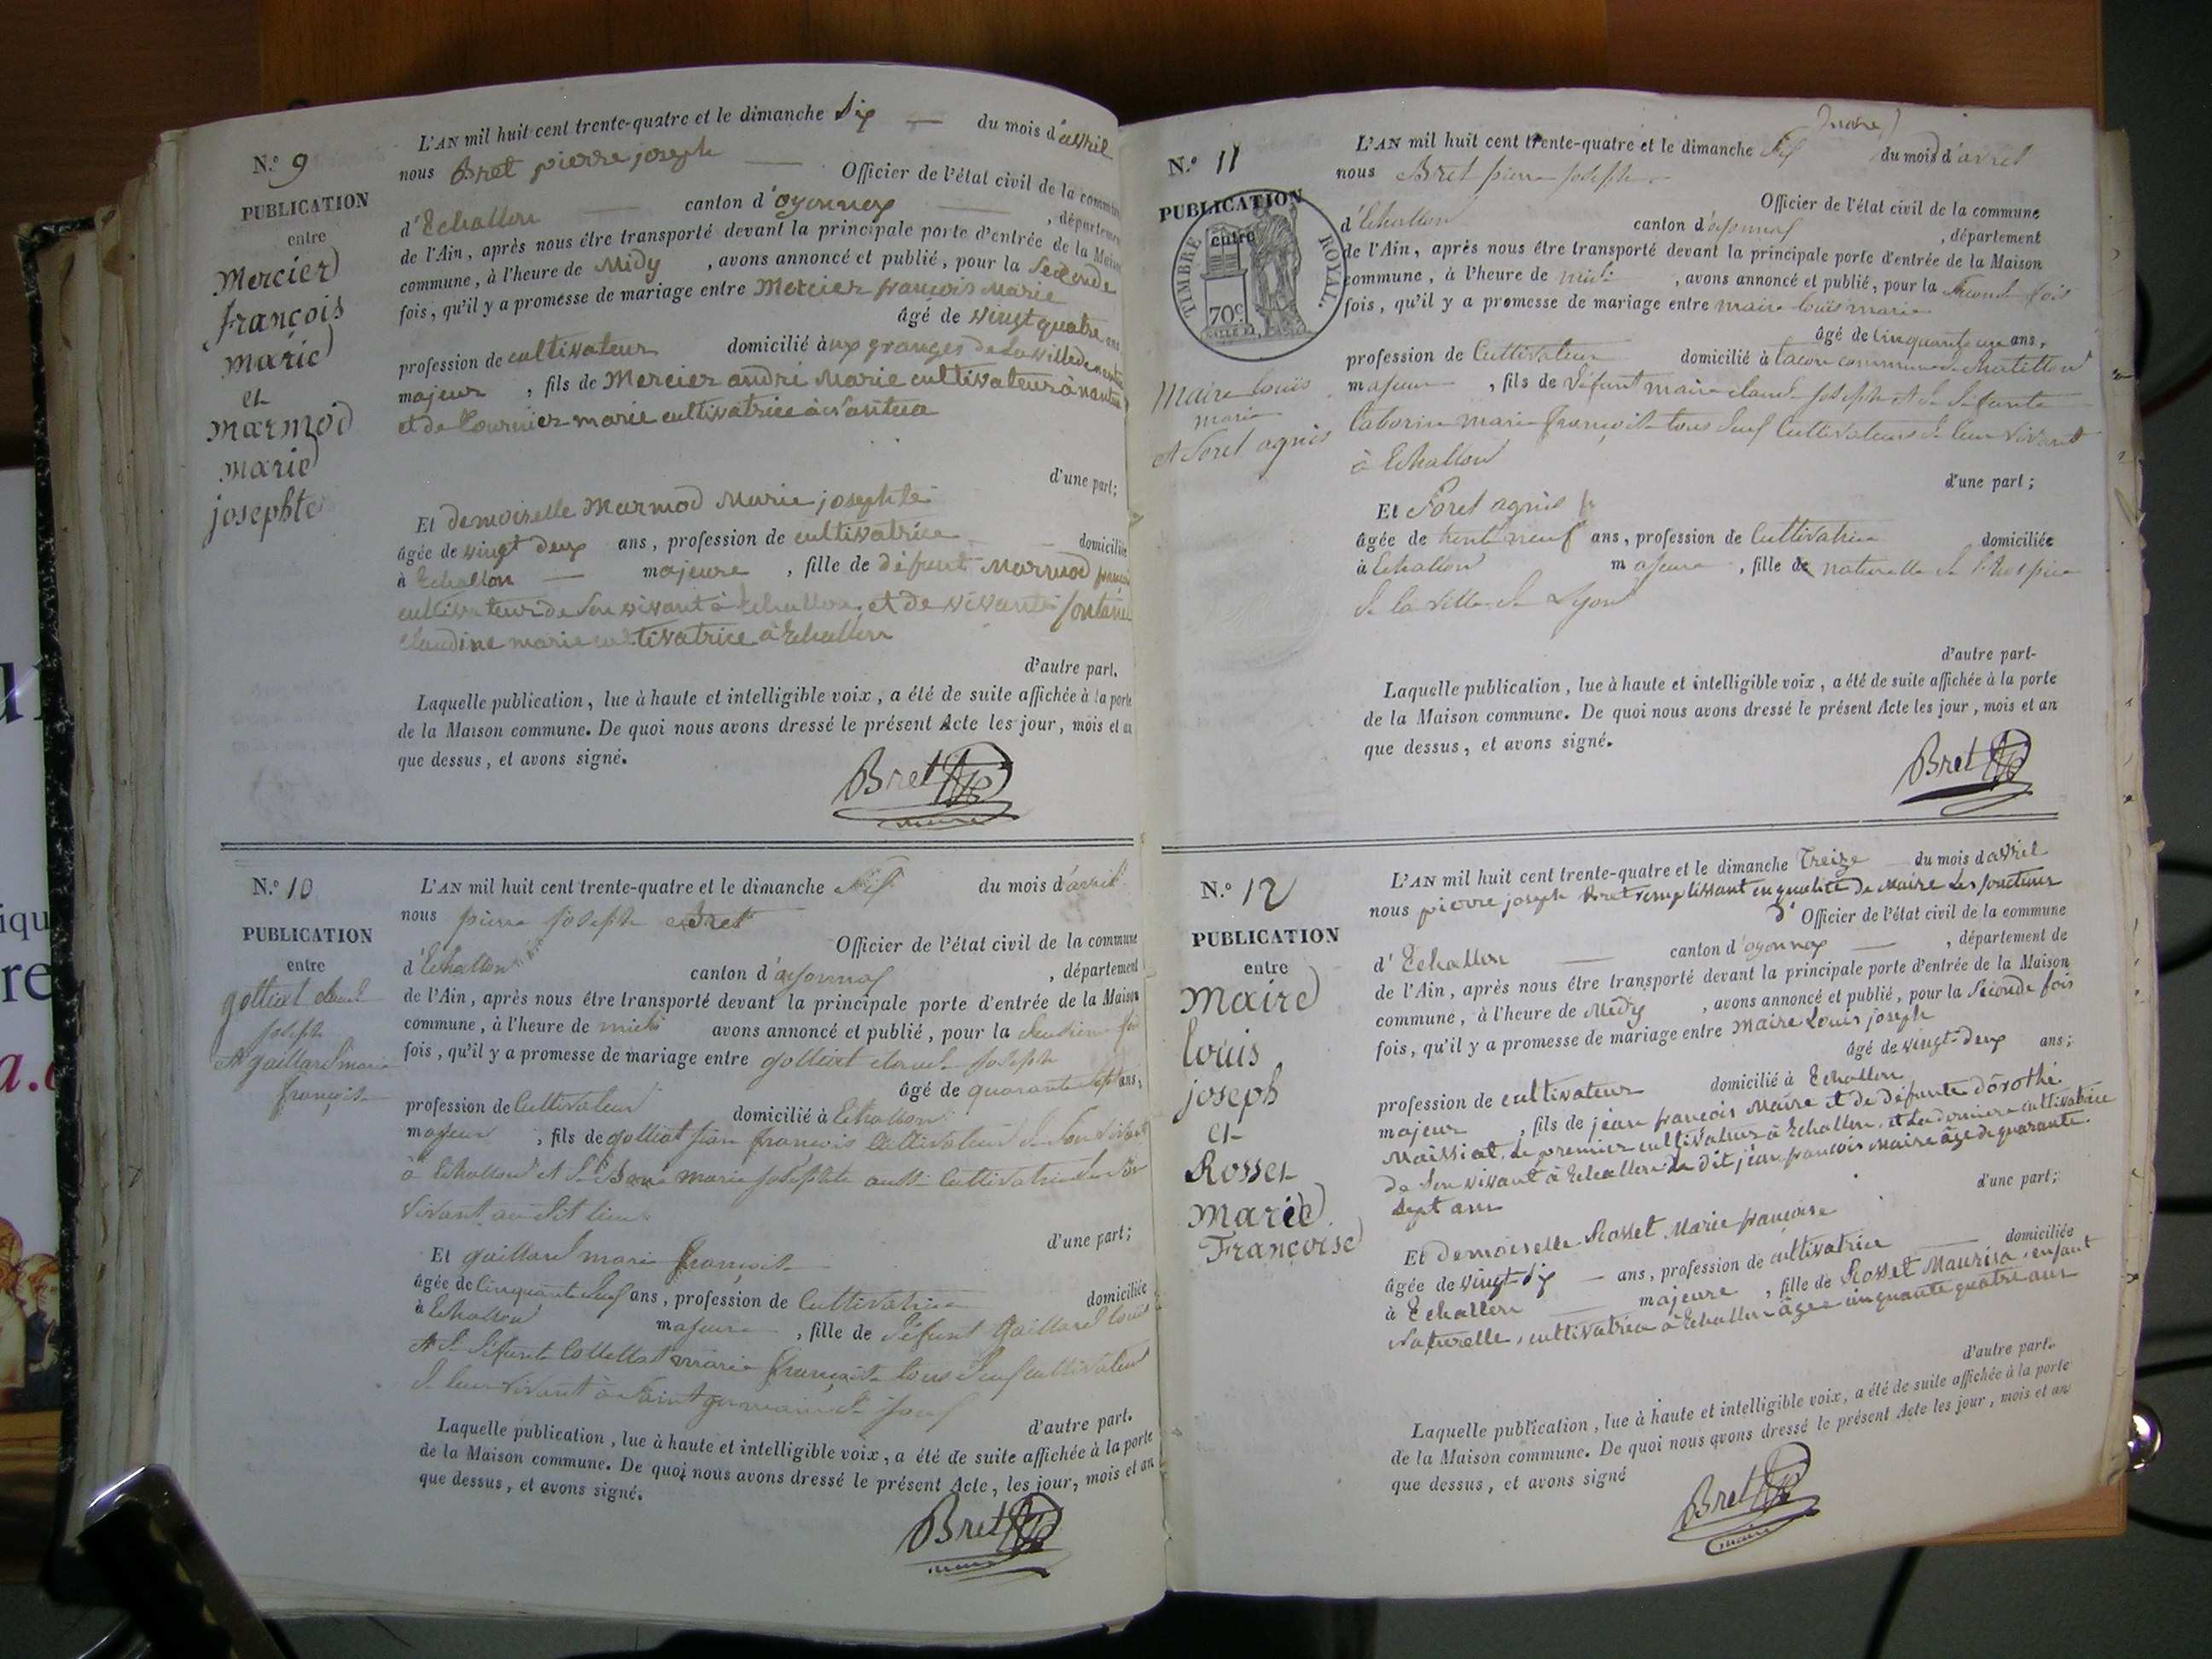 N.º 9
PUBLICATION
entre
Mercier
françois
marie
et
marmod
marie
josephte
L'AN mil huit cent trente-quatre et le dimanche Six du mois d'avril
nous Bret pierre joseph
Officier de l'état civil de la commune
d'Echallon canton d'oyonnax , département
de l'Ain, après nous être transporté devant la principale porte d'entrée de la Maison
commune, à l'heure de Midy , avons annoncé et publié, pour la Seconde
fois, qu'il y a promesse de mariage entre Mercier françois Marie
âgé de vingt quatre ans
profession de cultivateur domicilié à ux granges de la ville de
majeur , fils de Mercier andré Marie cultivateur à nantua
et de Tournier marie cultivatrice à Nantua
d'une part;
Et demoiselle Marmod Marie josephte
âgée de vingt deux ans, profession de cultivatrice domiciliée
à Echallon majeure , fille de défunt Marmod françois
cultivateur de Son vivant à Echallon, et de vivante fontaine
claudine marie cultivatrice à Echallon
d'autre part.
Laquelle publication, lue à haute et intelligible voix, a été de suite affichée à la porte
de la Maison commune. De quoi nous avons dressé le présent Acte les jour, mois et an
que dessus, et avons signé.
Bret
maire
N.º 10
PUBLICATION
entre
golliat claude
joseph
Et gaillard marie
françoise
L'AN mil huit cent trente-quatre et le dimanche Six du mois d'avril
nous pierre joseph Bret
Officier de l'état civil de la commune
d'Echallon canton d'oyonnax , département
de l'Ain, après nous être transporté devant la principale porte d'entrée de la Maison
commune, à l'heure de midi avons annoncé et publié, pour la deuxieme fois
fois, qu'il y a promesse de mariage entre golliat claude joseph
âgé de quarante Sept ans,
profession de Cultivateur domicilié à Echallon
majeur , fils de golliat jean françois Cultivateur de Son vivant
à Echallon et de Bené marie josephte aussi Cultivatrice de Son
vivant au dit lieu
d'une part;
Et gaillard marie françoise
âgée de Cinquante deux ans, profession de Cultivatrice domiciliée
à Echallon majeure , fille de défunt Gaillard louis
et de défunte Collettat marie françoise tous deux cultivateur
de leur vivant à Saint germain de joux
d'autre part.
Laquelle publication, lue à haute et intelligible voix, a été de suite affichée à la porte
de la Maison commune. De quoi nous avons dressé le présent Acte, les jour, mois et an
que dessus, et avons signé.
Bret
maire
N.º 11
PUBLICATION
entre
TIMBRE ROYAL.
70c
Maire louis
marie
et Foret agnis
L'AN mil huit cent trente-quatre et le dimanche Six du mois d'avril
nous Bret pierre joseph
Officier de l'état civil de la commune
d'Echallon canton d'oyonnax , département
de l'Ain, après nous être transporté devant la principale porte d'entrée de la Maison
commune, à l'heure de midi , avons annoncé et publié, pour la Seconde fois
fois, qu'il y a promesse de mariage entre maire louis marie
âgé de Cinquante une ans,
profession de Cultivateur domicilié à lacou commune de Chatillon
majeur , fils de défunt maire claude joseph et de défunte
Caborin marie françoise tous deux Cultivateurs de leur vivant
à Echallon
d'une part;
Et Foret agnis
âgée de trente neuf ans, profession de Cultivatrice domiciliée
à Echallon majeure , fille de naturelle de l'hospice
de la ville de Lyon
d'autre part-
Laquelle publication, lue à haute et intelligible voix, a été de suite affichée à la porte
de la Maison commune. De quoi nous avons dressé le présent Acte les jour, mois et an
que dessus, et avons signé.
Bret
N.º 12
PUBLICATION
entre
Maire
Louis
joseph
et
Rosset
Marie
Françoise
L'AN mil huit cent trente-quatre et le dimanche Treize du mois d'avril
nous pierre joseph Bret remplissant en qualité de Maire Les fonctions
d' Officier de l'état civil de la commune
d'Echallon canton d'oyonnax , département de
de l'Ain, après nous être transporté devant la principale porte d'entrée de la Maison
commune, à l'heure de Midy , avons annoncé et publié, pour la Seconde fois
fois, qu'il y a promesse de mariage entre Maire Louis joseph
âgé de vingt-deux ans;
profession de cultivateur domicilié à Echallon
majeur , fils de jean françois Maire et de défunte dorothé
Maissiat, le premier cultivateur à Echallon, et la derniere cultivatrice
de Son vivant à Echallon le dit jean françois Maire âgé de quarante
Sept ans
d'une part;
Et Demoiselle Rosset Marie françoise
âgée de vingt-Six ans, profession de cultivatrice domiciliée
à Echallon majeure , fille de Rosset Maurisa, enfant
Naturelle, cultivatrice à Echallon âgée cinquante quatre ans
d'autre part.
Laquelle publication, lue à haute et intelligible voix, a été de suite affichée à la porte
de la Maison commune. De quoi nous avons dressé le présent Acte les jour, mois et an
que dessus, et avons signé
Bret
maire